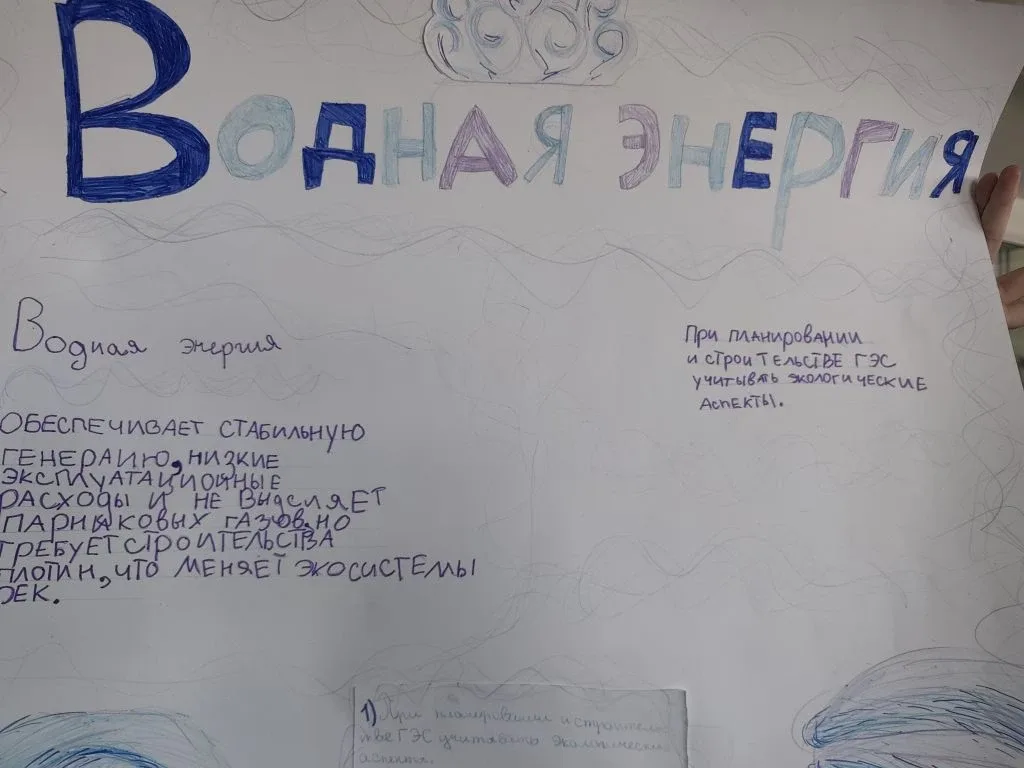 Водная энергия
Водная энергия
ОБЕСПЕЧИВАЕТ СТАБИЛЬНУЮ
ГЕНЕРАИЮ, НИЗКИЕ
ЭКСПЛУАТАЦИОННЫЕ
РАСХОДЫ И НЕ ВЫДЕЛЯЕТ
ПАРНИКОВЫХ ГАЗОВ, НО
ТРЕБУЕТ СТРОИТЕЛЬСТВА
ПЛОТИН, ЧТО МЕНЯЕТ ЭКОСИСТЕМЫ
РЕК.
При планировании
и строительстве ГЭС
учитывать экологические
аспекты.
1) При планировании и строительс
тве ГЭС учитывать экологические
аспекты.